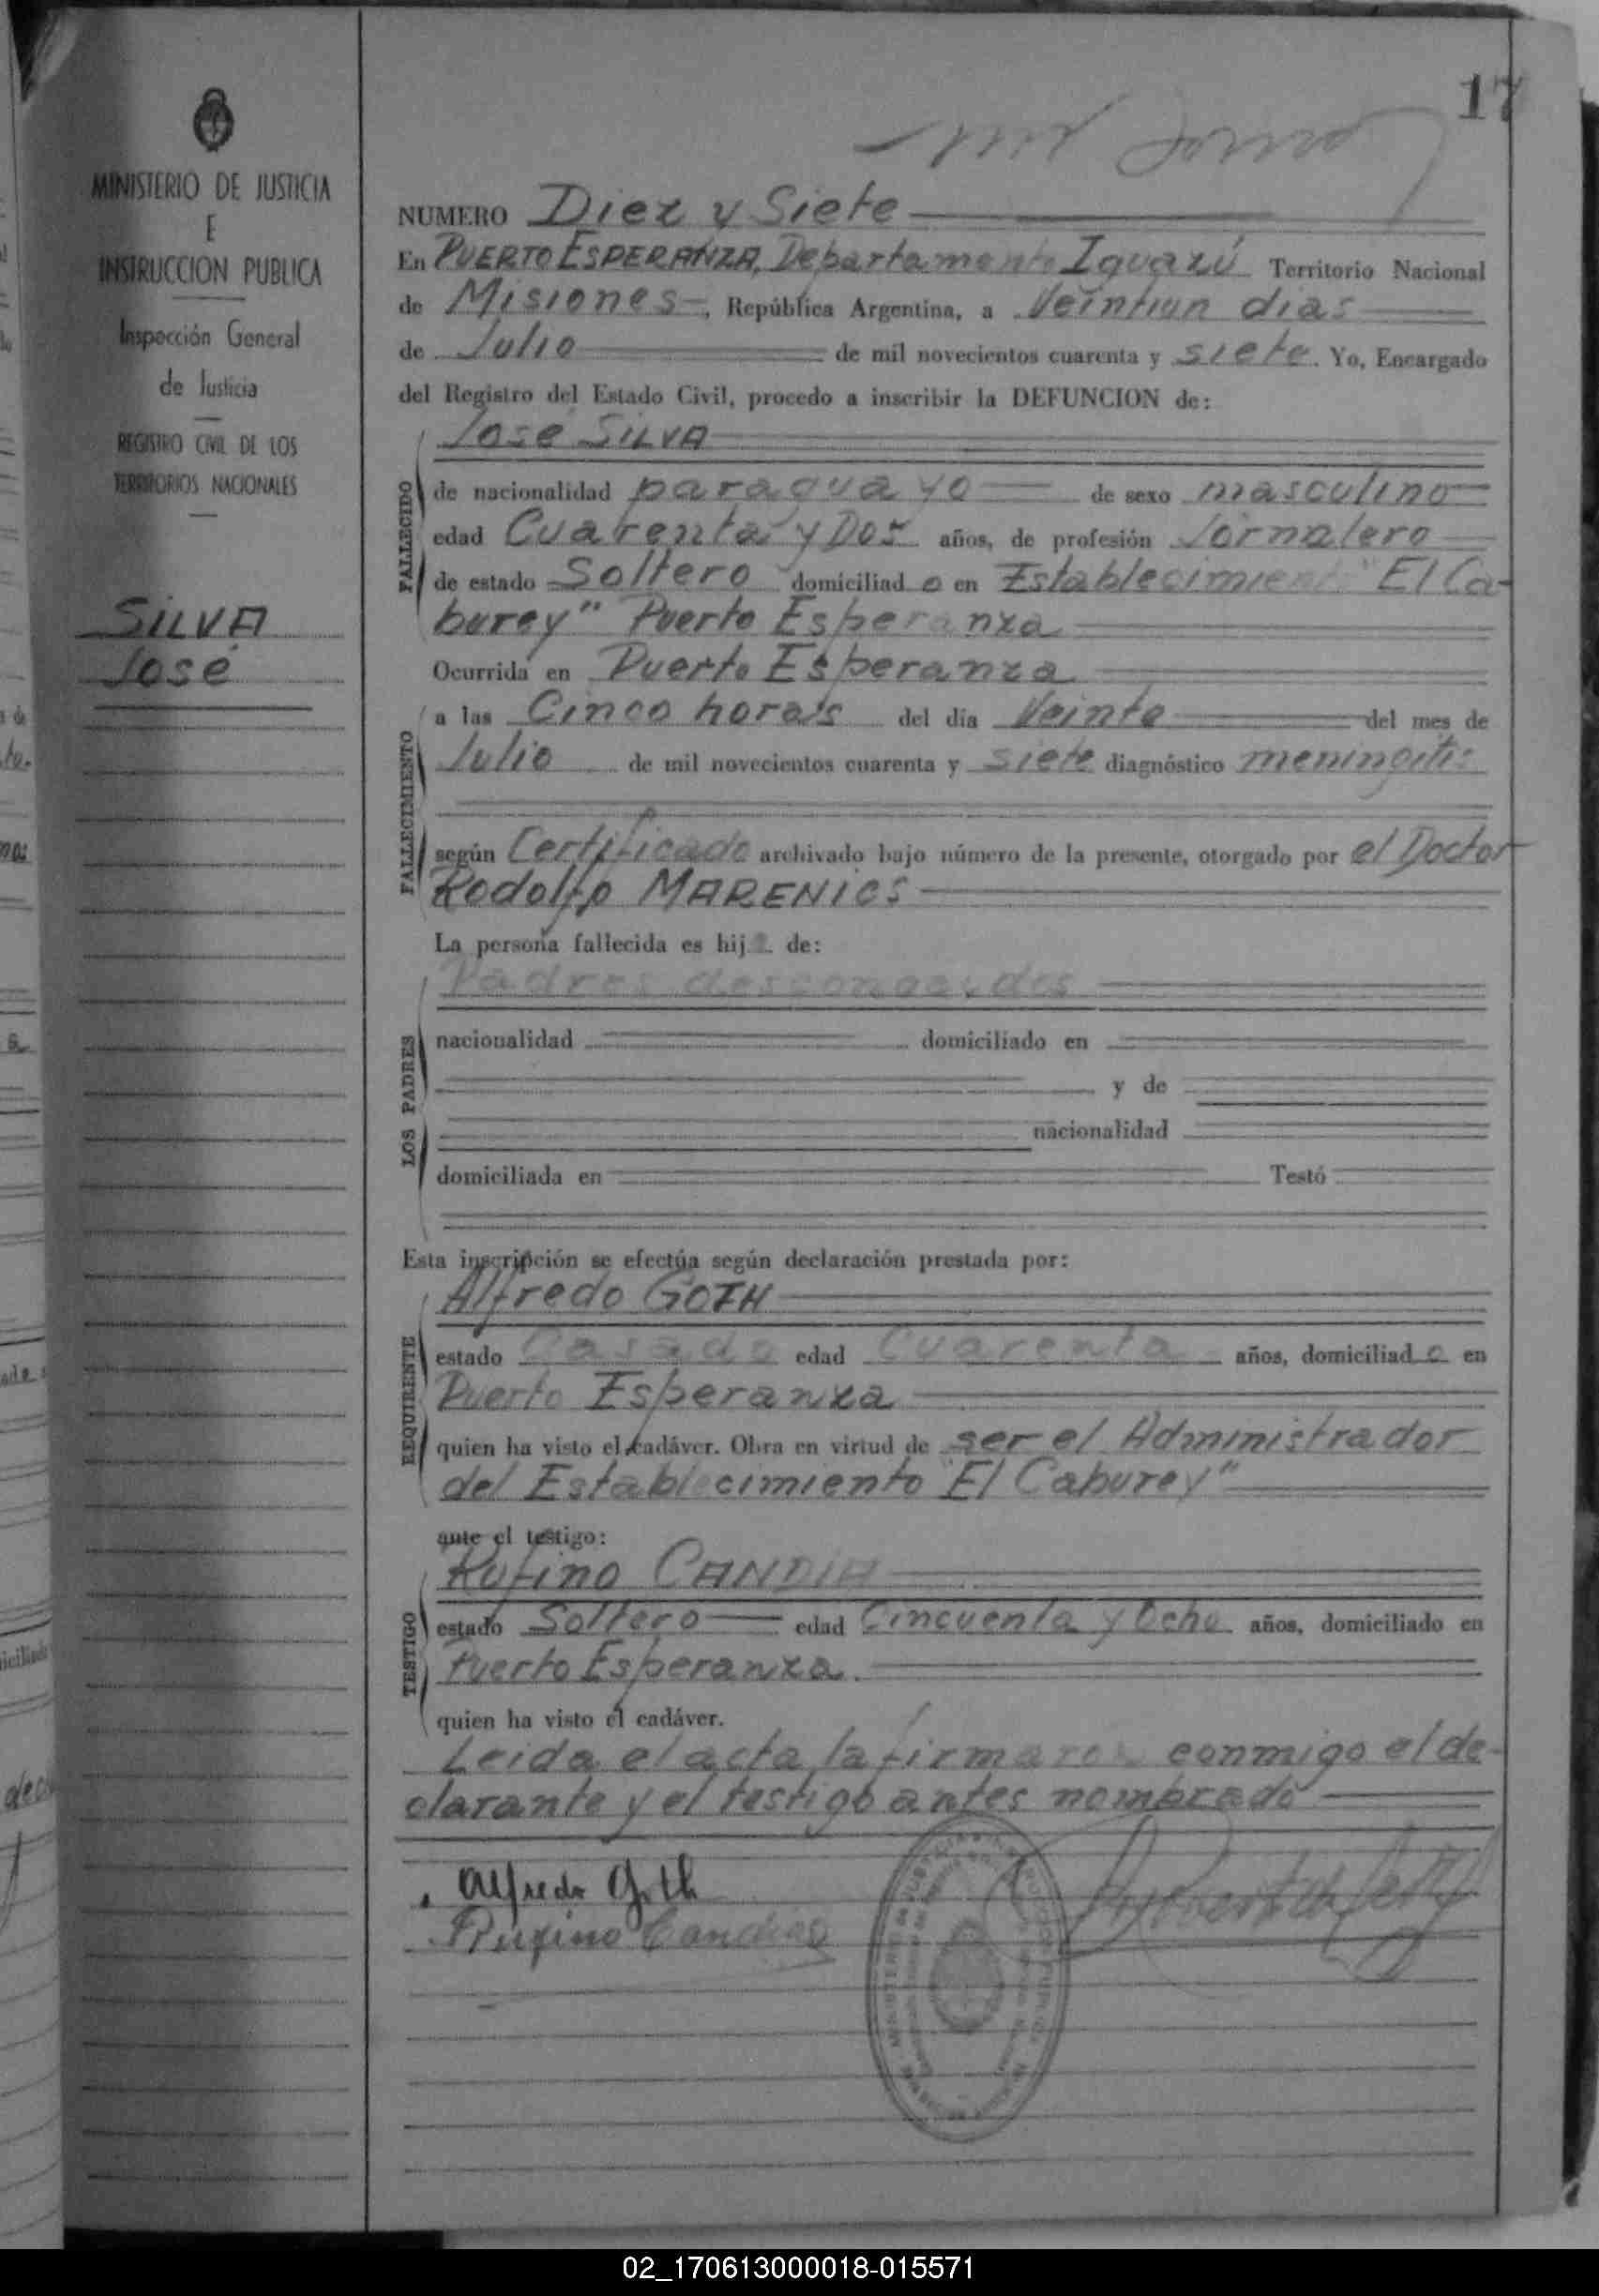 17
MINISTERIO DE JUSTICIA
E
INSTRUCCION PUBLICA
Inspección General
de Justicia
REGISTRO CIVIL DE LOS
TERRITORIOS NACIONALES
SILVA
José
NUMERO Diez y Siete
En PUERTO ESPERANZA, Departamento Iguazú Territorio Nacional
de Misiones, República Argentina, a Veintiun dias
de Julio de mil novecientos cuarenta y siete. Yo, Encargado
del Registro del Estado Civil, procedo a inscribir la DEFUNCION de:
José SILVA
FALLECIDO
de nacionalidad paraguayo de sexo masculino
edad Cuarenta y Dos años, de profesión Jornalero
de estado Soltero domiciliado en Establecimiento "El Ca-
burey" Puerto Esperanza
Ocurrida en Puerto Esperanza
FALLECIMIENTO
a las Cinco horas del día Veinte del mes de
Julio de mil novecientos cuarenta y siete diagnóstico meningitis
según Certificado archivado bajo número de la presente, otorgado por el Doctor
Rodolfo MARENICS
La persona fallecida es hij de:
Padres desconocidos
LOS PADRES
nacionalidad domiciliado en
y de
nacionalidad
domiciliada en Testó
Esta inscripción se efectúa según declaración prestada por:
Alfredo GOTH
REQUIRENTE
estado Casado edad Cuarenta años, domiciliado en
Puerto Esperanza
quien ha visto el cadáver. Obra en virtud de ser el Administrador
del Establecimiento "El Caburey"
ante el testigo:
Rufino CANDIA
TESTIGO
estado Soltero edad Cincuenta y Ocho años, domiciliado en
Puerto Esperanza.
quien ha visto el cadáver.
Leida el acta la firmaron conmigo el de-
clarante y el testigo antes nombrado
Alfredo Goth
Rufino Candia
02_170613000018-015571